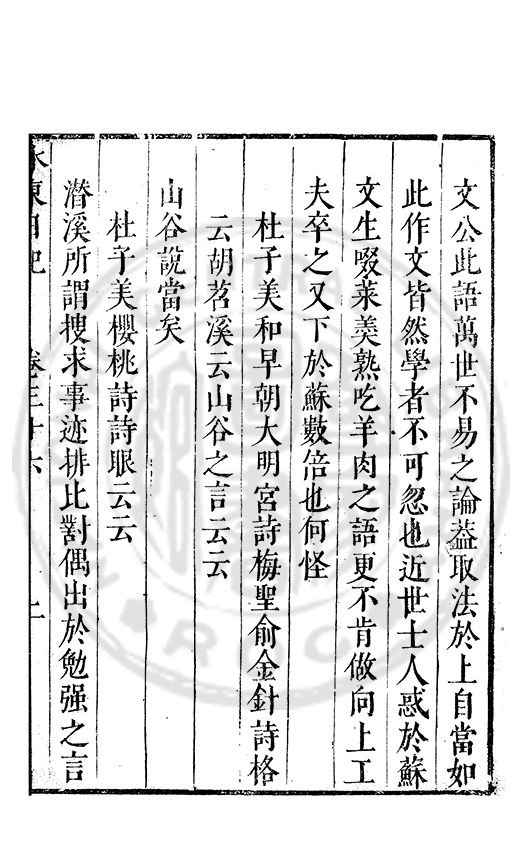 文公此語萬世不易之論葢取法於上自當如
此作文皆然學者不可忽也近世士人惑於蘇
文生啜菜羹熟吃羊肉之語更不肯做向上工
夫卒之又下於蘇數倍也何怪
杜子美和早朝大明宮詩梅聖俞金針詩格
云胡苕溪云山谷之言云云
山谷說當矣
杜子美櫻桃詩詩眼云云
潛溪所謂捜求事迹排比對偶出於勉强之言
水東日記 卷三十六 二